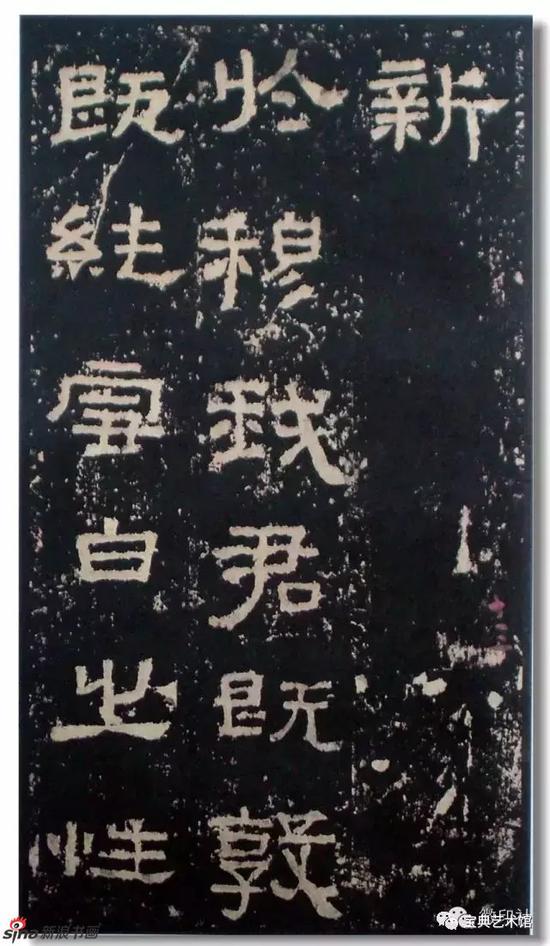 新
於穆我君既敦
既純雪白之性
sina新浪书画
宝典艺术馆